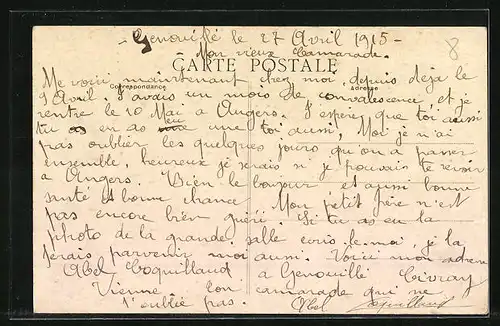 - Genouillé le 27 Avril 1915 -
8
Mon vieux Camarade.
CARTE POSTALE
Me voici maintenant chez moi, depuis déja le
Correspondance
Adresse
9 Avril. J'avais un mois de convalescence, et je
rentre le 10 Mai a Angers. J'espère que toi aussi
tu as en as eu une toi aussi, Moi je n'ai
pas oublier les quelques jours qu'on a passer
ensemble, heureux je serais si je pouvais te revoir
a Angers. Bien le bonjour et aussi bonne
santé et bonne chance. Mon petit frère n'est
pas encore bien guéri. Si tu as eu la
photo de la grande salle ecris le moi, je la
ferais parvenir moi aussi. Voici mon adresse
Abel Coquillaud a Genouillé Civray
Vienne ton camarade qui ne
t'oublie pas. Abel Coquillaud